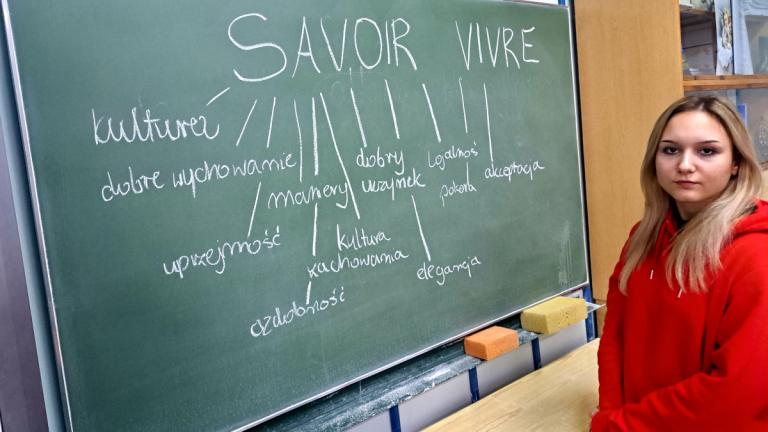 SAVOIR VIVRE
kultura
dobre wychowanie
maniery
dobry
uczynek
lojalność
pokora
akceptacja
uprzejmość
kultura
zachowania
elegancja
ozdobność